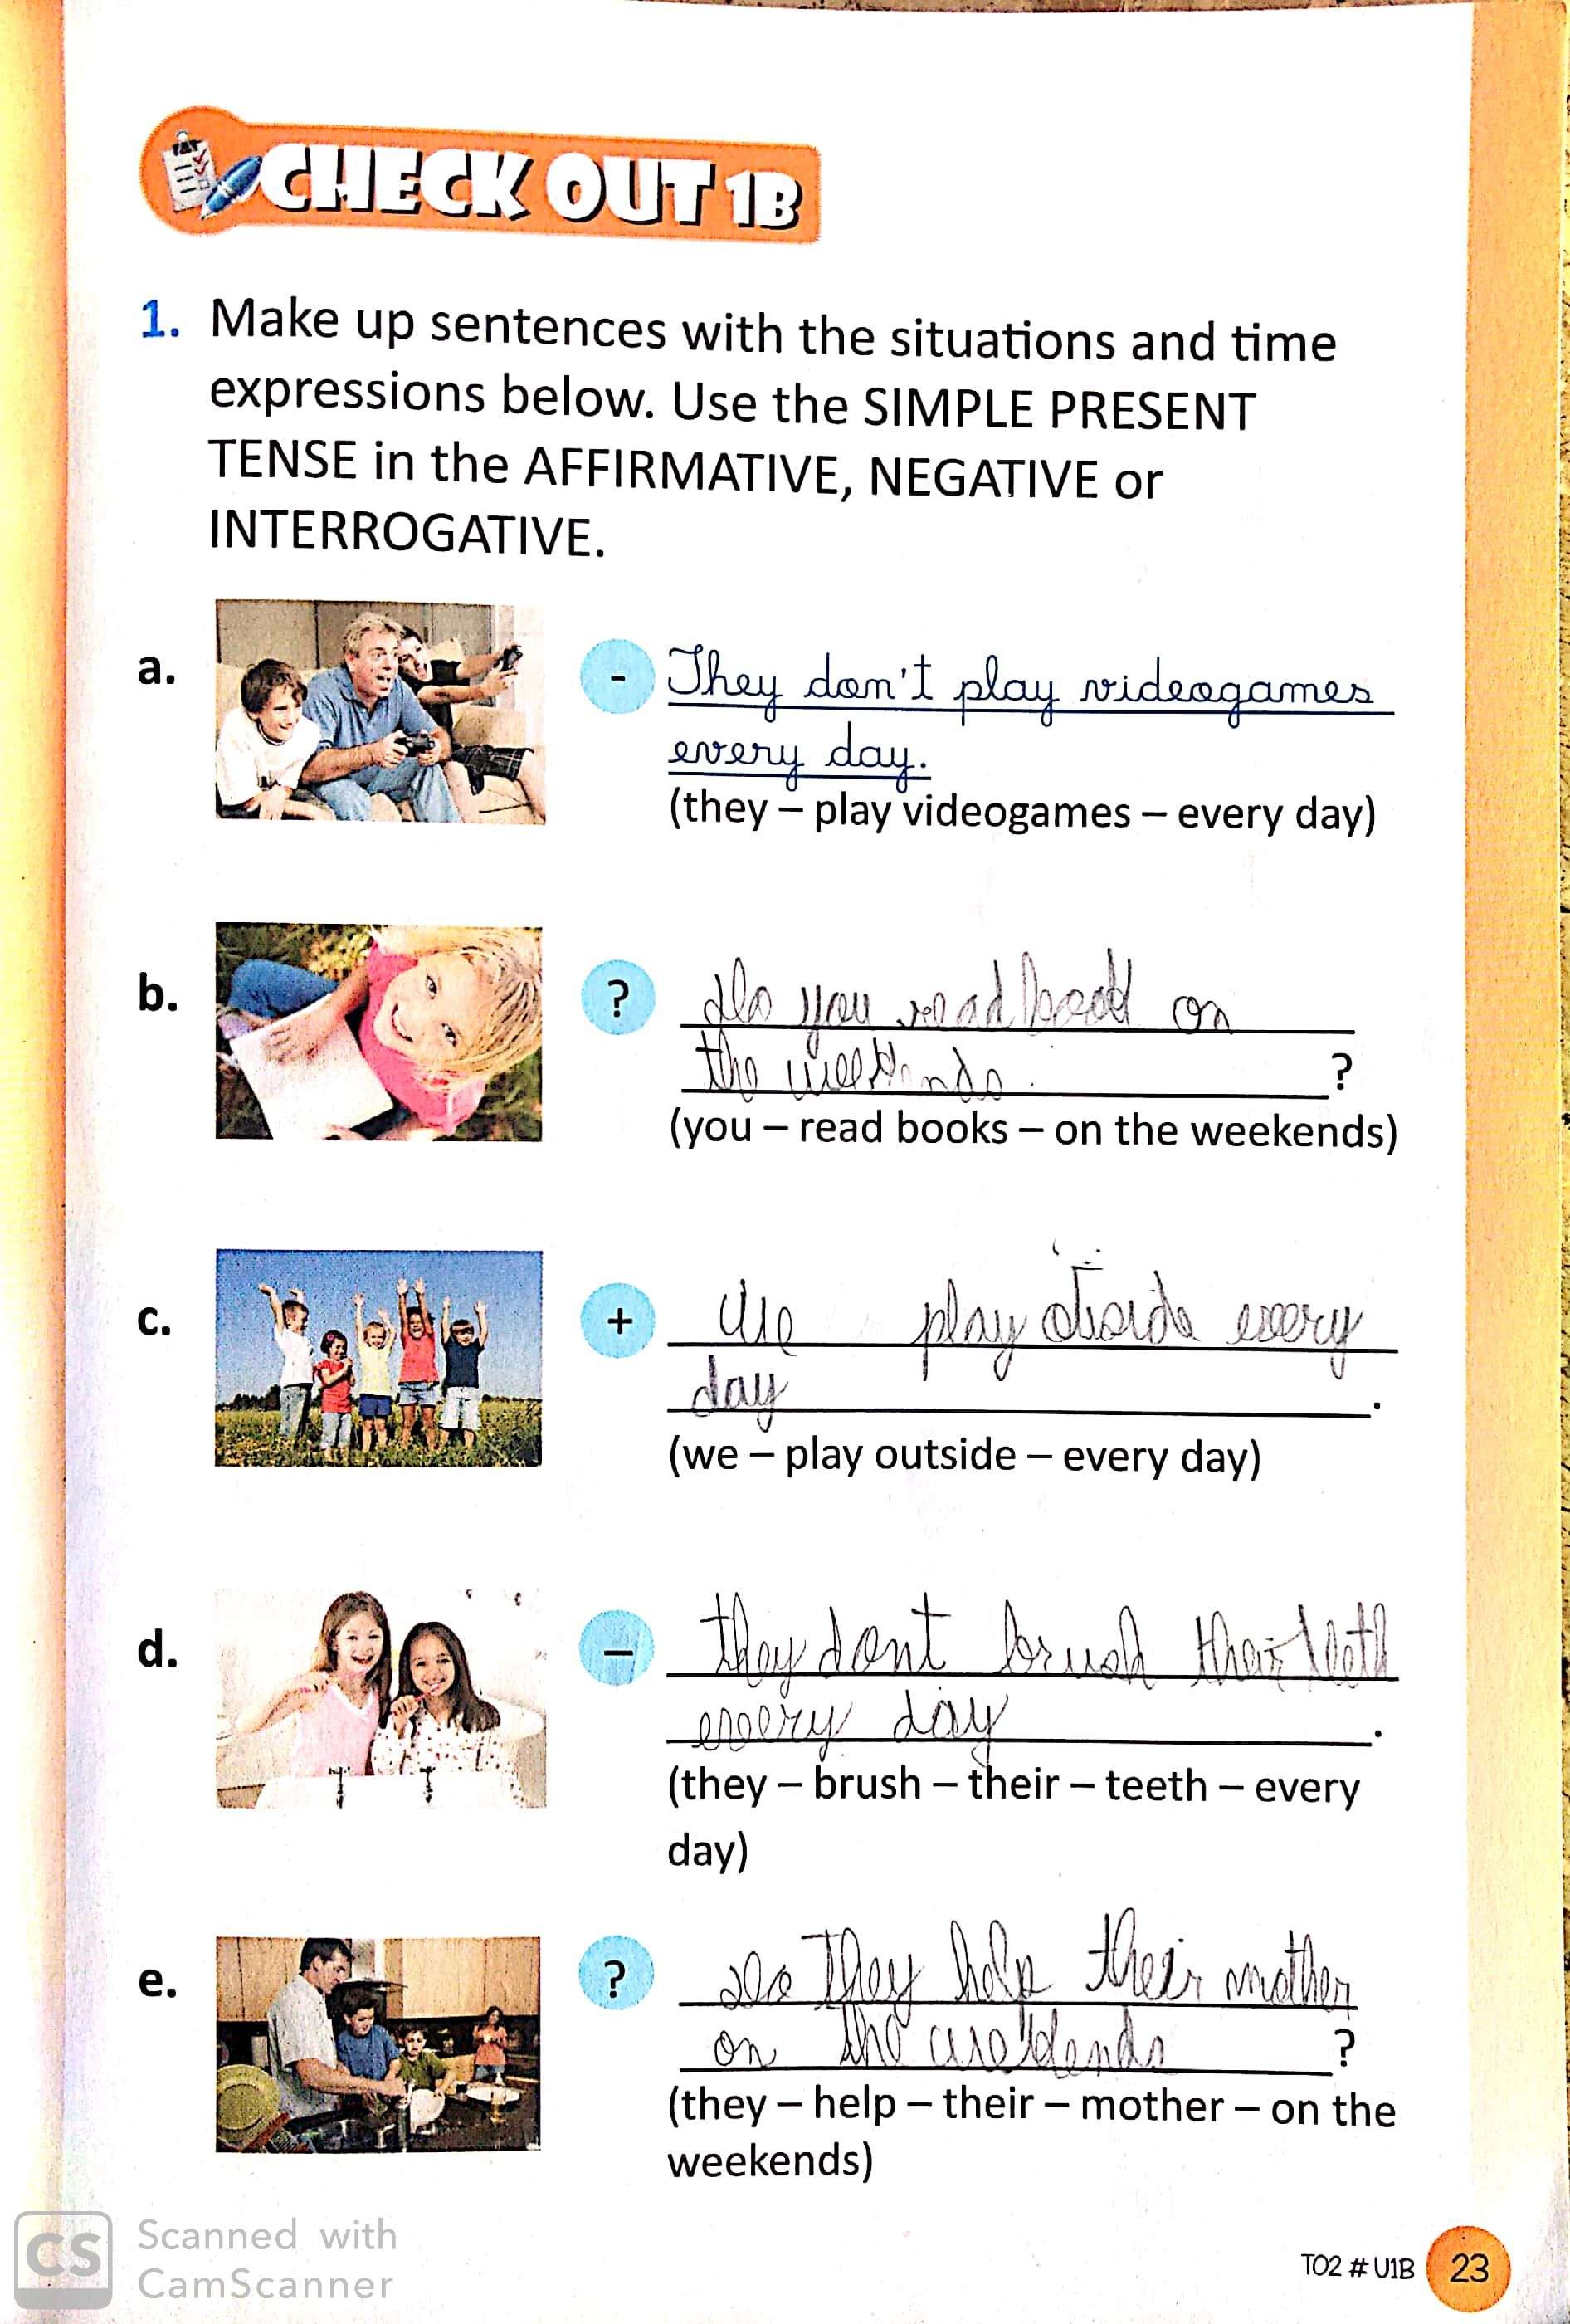 CHECK OUT 1B
1. Make up sentences with the situations and time
expressions below. Use the SIMPLE PRESENT
TENSE in the AFFIRMATIVE, NEGATIVE or
INTERROGATIVE.
a. - They don't play videogames
every day.
(they – play videogames – every day)
b. ? do you read on
the weekends ?
(you – read books – on the weekends)
c. + we play every
day .
(we – play outside – every day)
d. – they dont brush their teeth
every day .
(they – brush – their – teeth – every
day)
e. ? do They help their mother
on the ?
(they – help – their – mother – on the
weekends)
CS Scanned with
CamScanner
TO2 # U1B 23